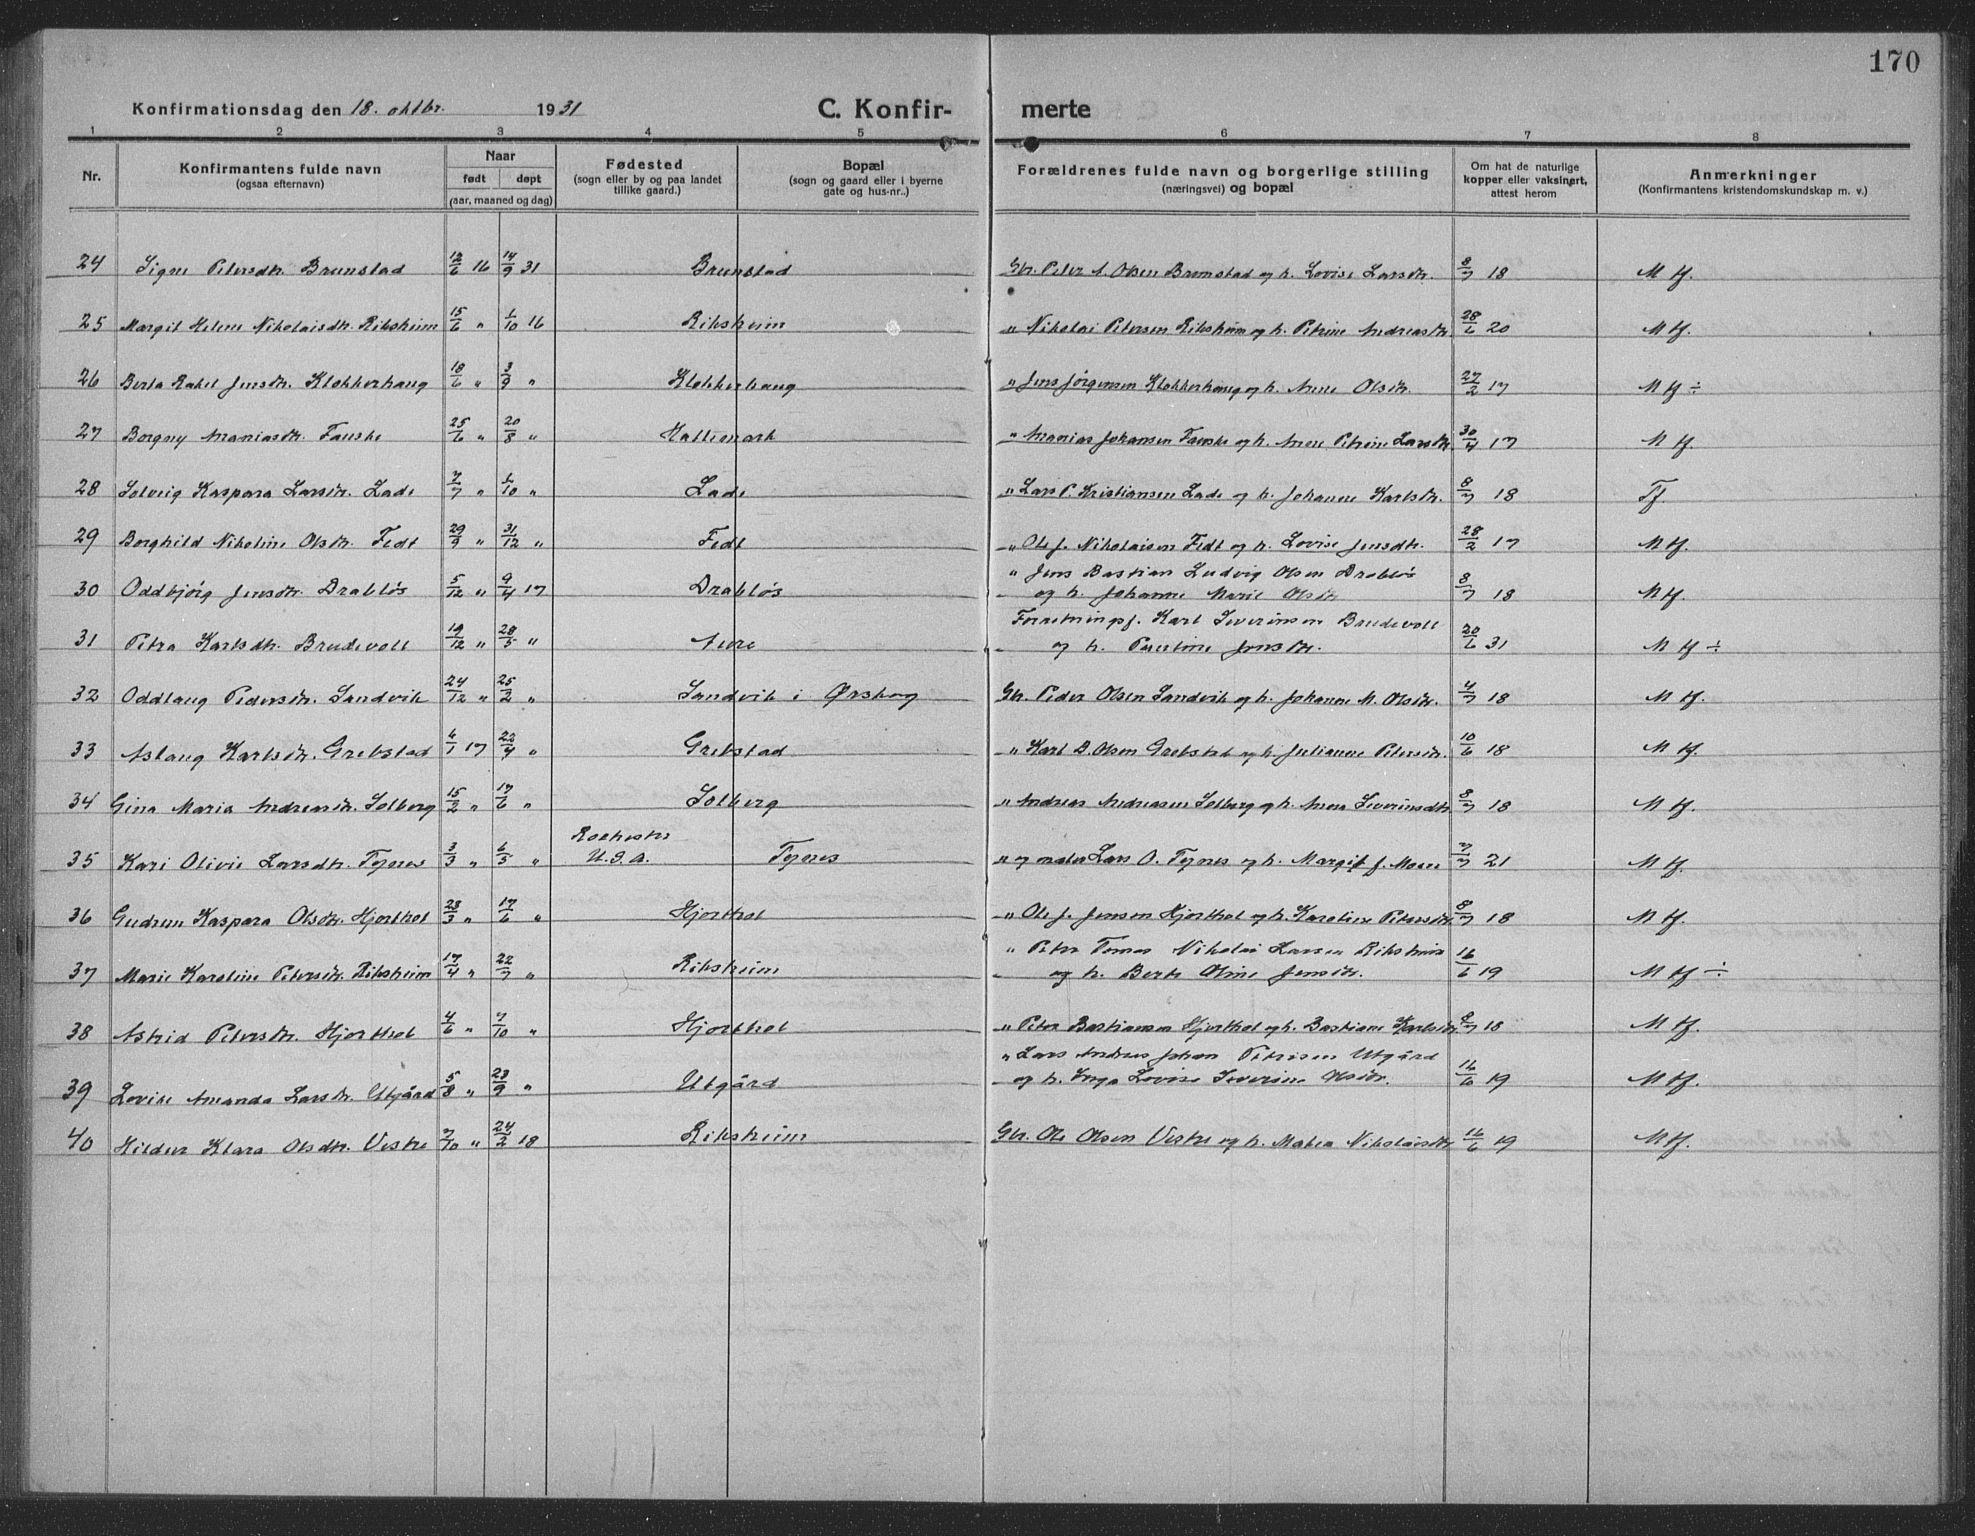 170
Konfirmationsdag den 18. oktbr. 1931 C. Konfir- merte
1 2 3 4 5 6 7 8
Nr. Konfirmantens fulde navn (ogsaa efternavn) Naar født døpt (aar, maaned og dag) Fødested (sogn eller by og paa landet tillike gaard.) Bopæl (sogn og gaard eller i byerne gate og hus-nr..) Forældrenes fulde navn og borgerlige stilling (næringsvei) og bopæl Om hat de naturlige kopper eller vaksinert, attest herom Anmerkninger (Konfirmantens kristendomskundskap m. v.)
24 Signe Petersdtr. Brunstad 12/6 16 14/9 31 Brunstad Gbr. Peter A. Olsen Brunstad og h. Lovise Larsdtr. 8/7 18 M tf.
25 Margit Helene Nikolaisdtr. Riksheim 15/6 " 1/10 16 Riksheim " Nikolai Petersen Riksheim og h. Petrine Andreasdtr. 28/6 20 M tf.
26 Berta Rakel Jensdtr. Klokkerhaug 18/6 " 3/9 " Klokkerhaug " Jens Jørgensen Klokkerhaug og h. Anne Olsdtr. 27/2 17 M tf ÷
27 Borgny Ananiasdtr. Fauske 25/6 " 20/8 " Hattemark " Ananias Johansen Fauske og h. Anne Petrine Larsdtr. 30/4 17 M tf.
28 Solveig Kaspara Larsdtr. Lade 7/7 " 1/10 " Lade " Lars P. Kristiansen Lade og h. Johanne Karlsdtr. 8/7 18 Tf.
29 Borghild Nikoline Olsdtr. Fedt 29/9 " 31/12 " Fedt " Ole J. Nikolaisen Fedt og h. Lovise Jensdtr. 28/2 17 M tf.
30 Oddbjørg Jensdtr. Drabløs 5/12 " 9/4 17 Drabløs " Jens Bastian Ludvig Olsen Drabløs
og h. Johanne Marie Olsdtr. 8/7 18 M tf.
31 Petra Karlsdtr. Brudevoll 19/12 " 28/5 " Aure Forretningsf. Karl Severinsen Brudevoll
og h. Pauline Jensdtr. 20/6 31 M tf ÷
32 Oddlaug Pedersdtr. Sandvik 24/12 " 25/2 " Sandvik i Ørskog Gbr. Peder Olsen Sandvik og h. Johanne M. Olsdtr. 4/7 18 M tf.
33 Aslaug Karlsdtr. Grebstad 6/1 17 22/4 " Grebstad " Karl D. Olsen Grebstad og h. Julianne Petersdtr. 10/6 18 M tf.
34 Gina Maria Andreasdtr. Solberg 15/2 " 17/6 " Solberg " Andreas Andreasen Solberg og h. Anna Severinsdtr. 8/7 18 M tf.
35 Kari Olivie Larsdtr. Tynes 3/3 " 6/5 " Rochester
U.S.A. Tynes " og maler Lars O. Tynes og h. Margit J. Moen 7/7 21 M tf.
36 Gudrun Kaspara Olsdtr. Hjorthol 28/3 " 17/6 " Hjorthol " Ole J. Jensen Hjorthol og h. Karoline Petersdtr. 8/7 18 M tf.
37 Marie Karoline Petersdtr. Riksheim 17/4 " 22/7 " Riksheim " Peter Tomas Nikolai Larsen Riksheim
og h. Berte Oline Jensdtr. 16/6 19 M tf ÷
38 Astrid Petersdtr. Hjorthol 4/6 " 7/10 " Hjorthol " Peter Bastiansen Hjorthol og h. Bastiane Karlsdtr. 8/7 18 M tf.
39 Lovise Amanda Larsdtr. Utgård 5/8 " 23/9 " Utgård " Lars Andreas Johan Petersen Utgård
og h. Inga Lovise Severine Olsdtr. 16/6 19 M tf.
40 Hildur Klara Olsdtr. Vestre 7/10 " 24/2 18 Riksheim Gbr. Ole Olsen Vestre og h. Matea Nikolaisdtr. 16/6 19 M tf.